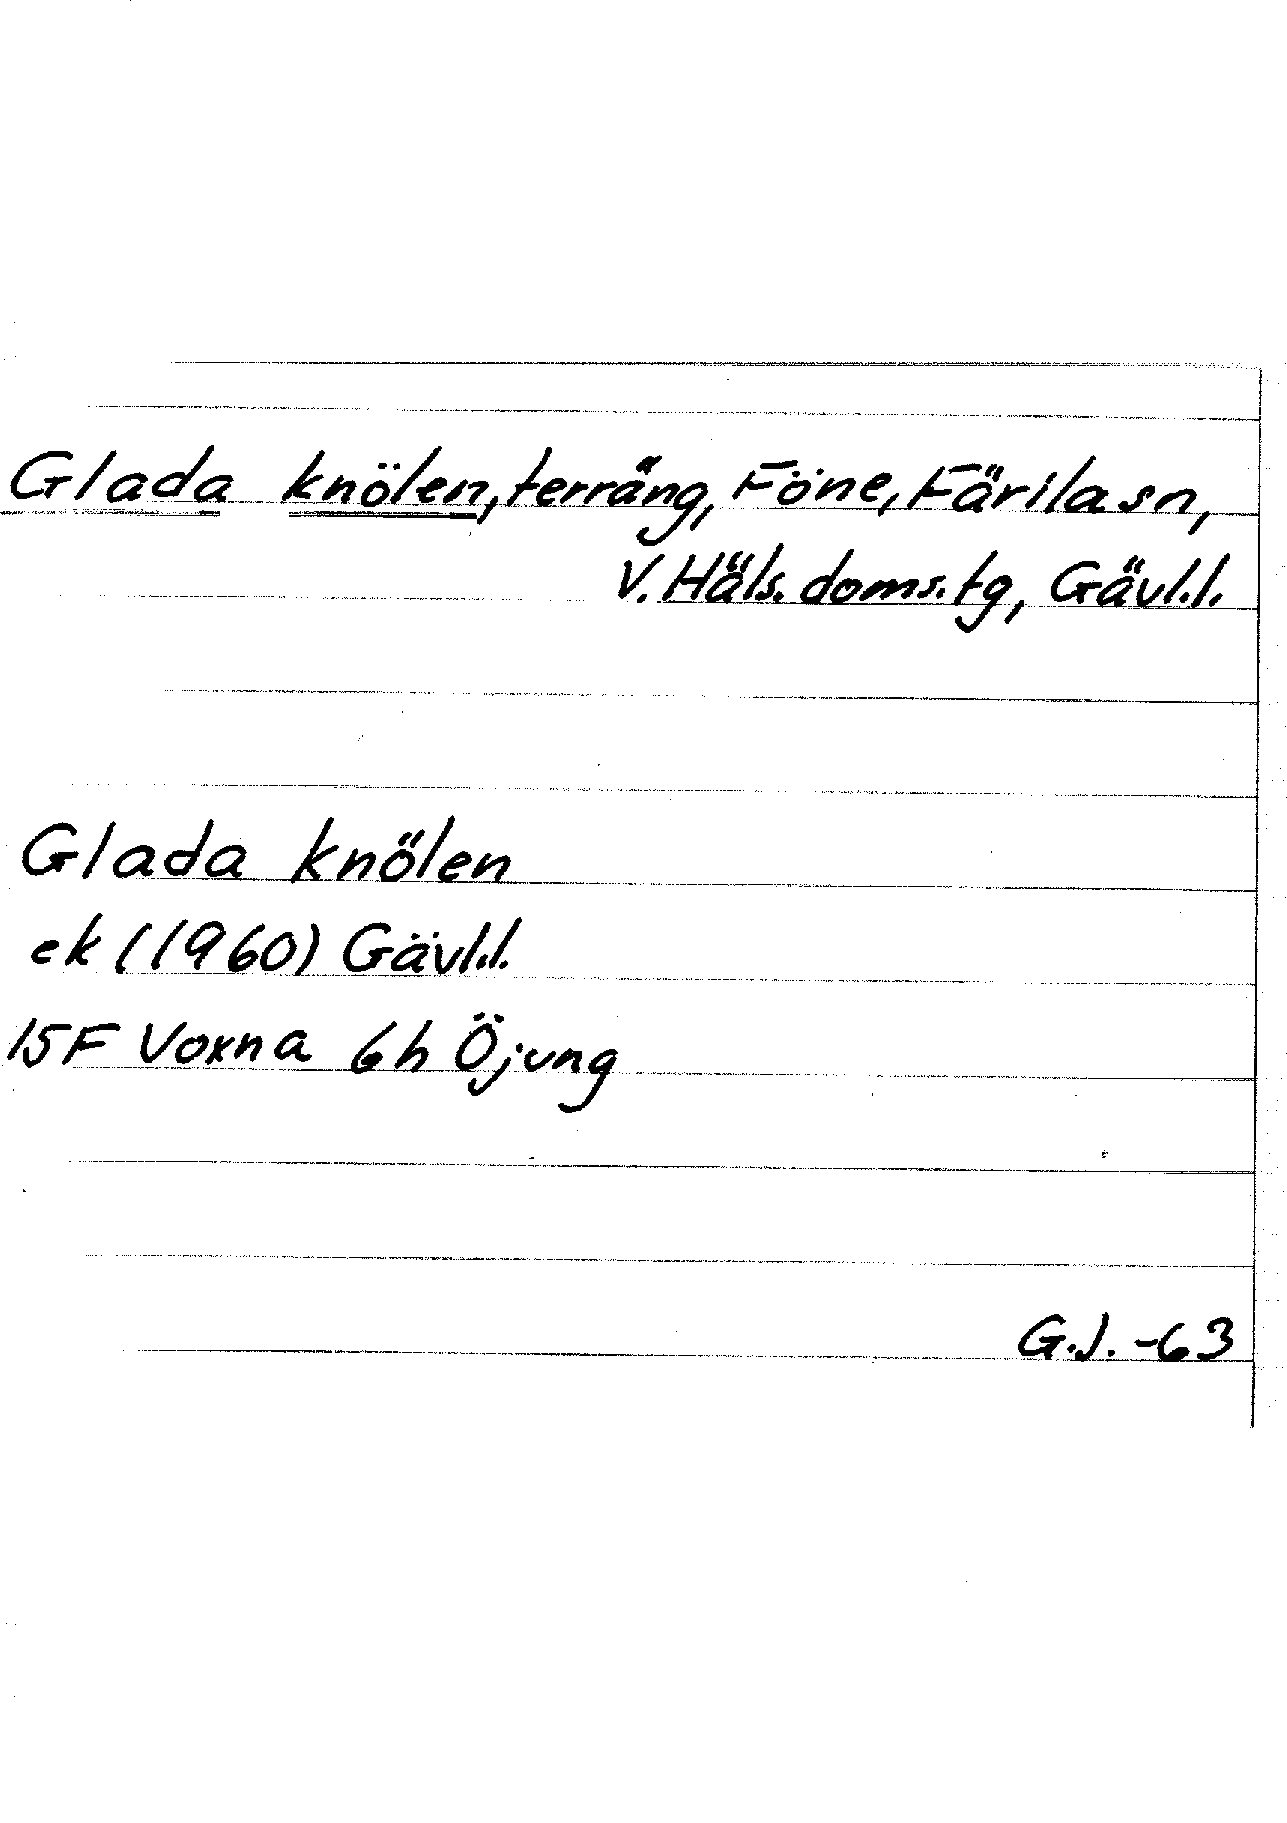 Glada knölen, terräng, Föne, Färila sn,
V. Häls. doms. tg, Gävl.l.
Glada knölen
ek (1960) Gävl.l.
15F Voxna 6h Öjung
G.J. -63